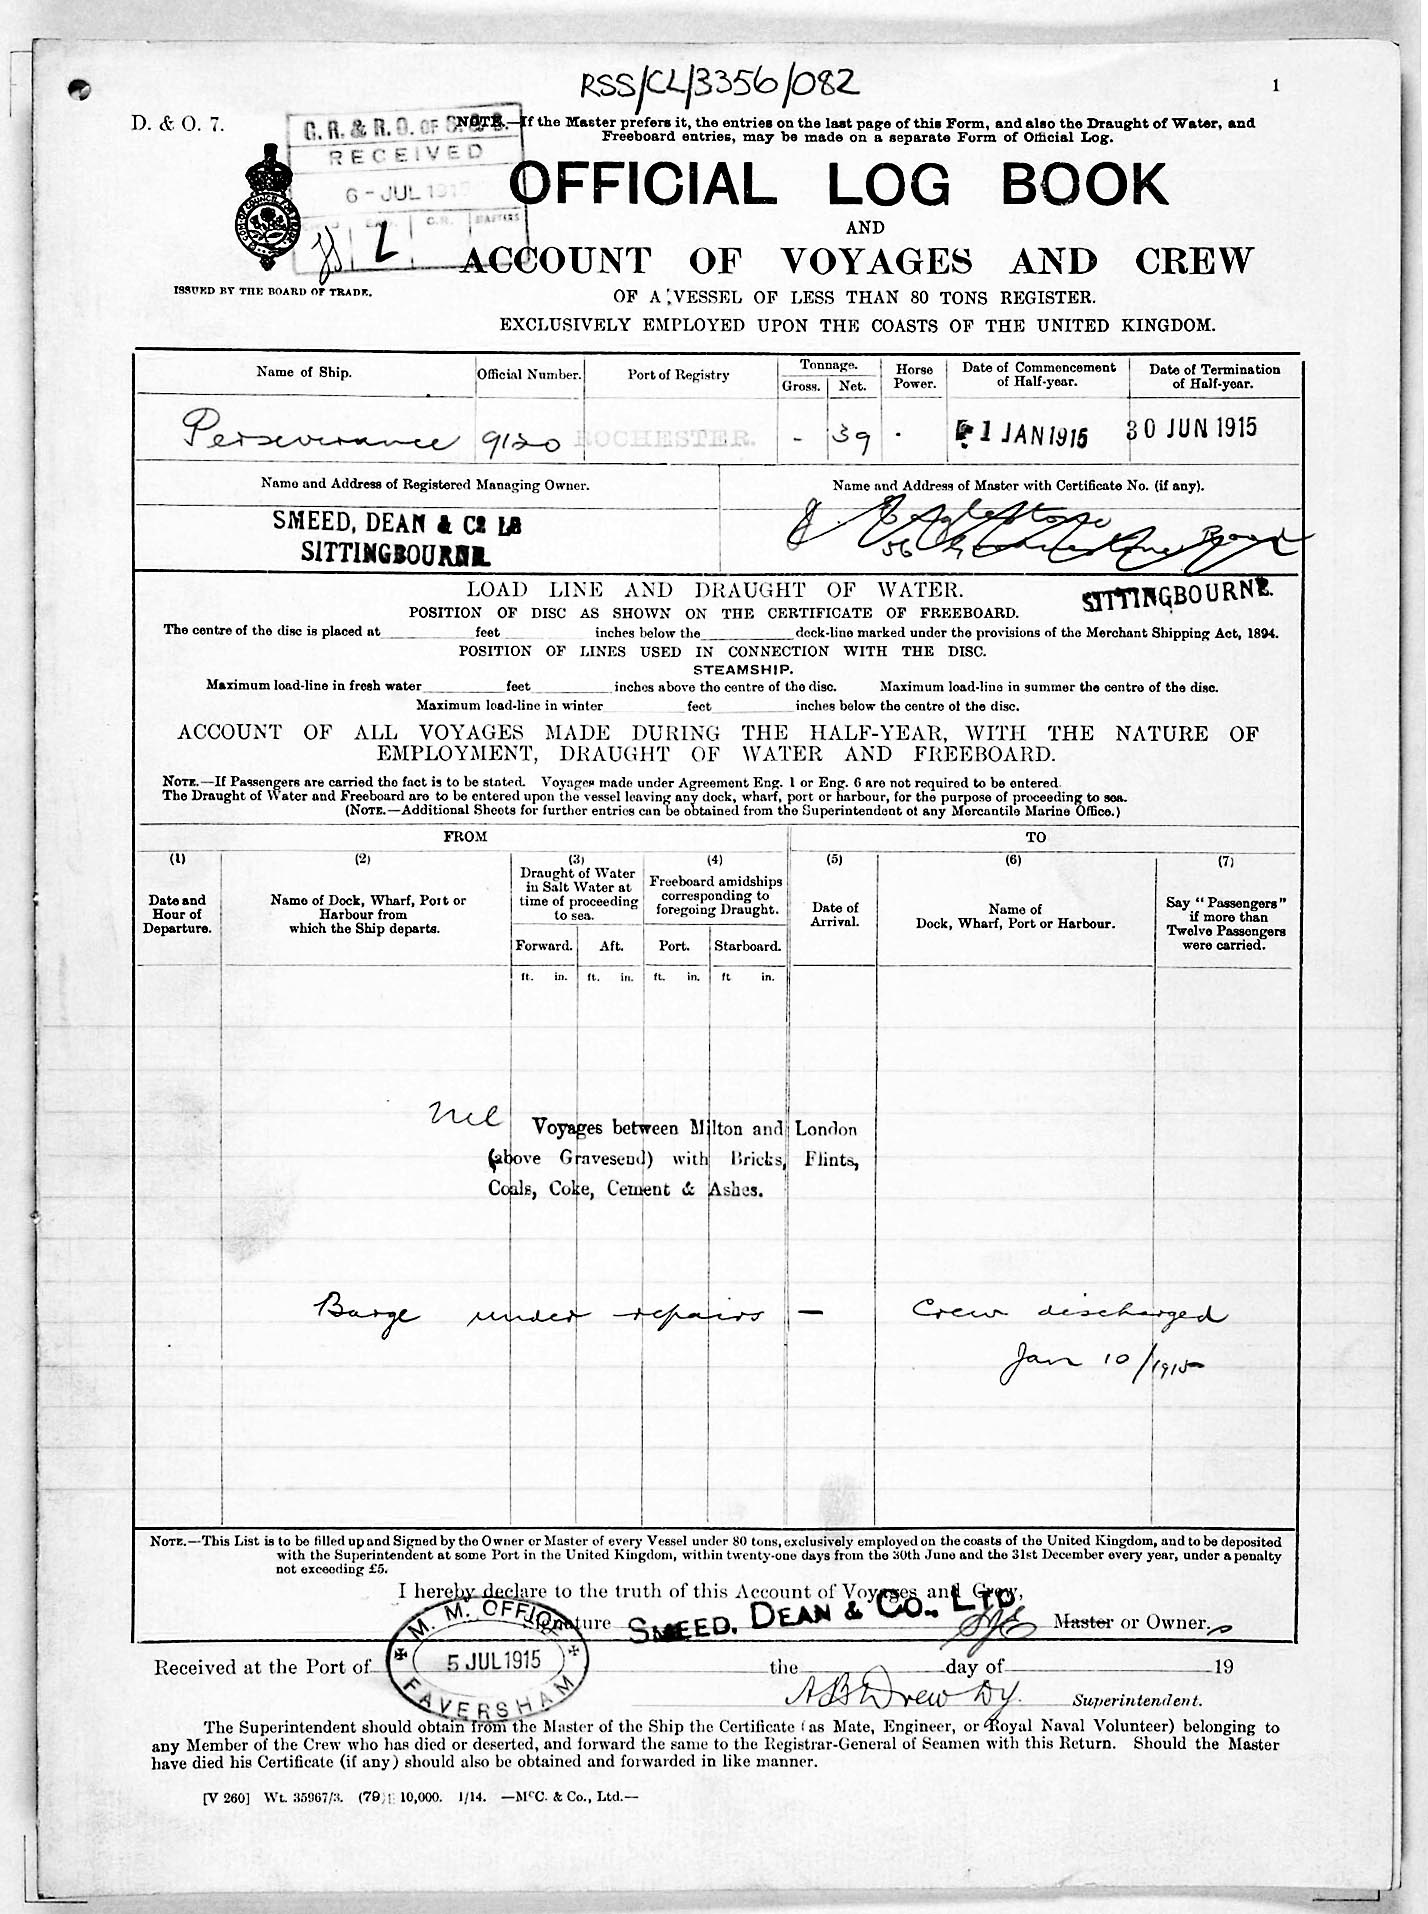 RSS/CL/3356/082
1
D. & O. 7.
C. R. & R. O. OF S. & S.
RECEIVED
6 - JUL 1915
C.R.
L
NOTE.—If the Master prefers it, the entries on the last page of this Form, and also the Draught of Water, and
Freeboard entries, may be made on a separate Form of Official Log.
OFFICIAL LOG BOOK
AND
ACCOUNT OF VOYAGES AND CREW
ISSUED BY THE BOARD OF TRADE.
OF A VESSEL OF LESS THAN 80 TONS REGISTER.
EXCLUSIVELY EMPLOYED UPON THE COASTS OF THE UNITED KINGDOM.
Name of Ship.
Official Number.
Port of Registry
Tonnage.
Gross. Net.
Horse
Power.
Date of Commencement
of Half-year.
Date of Termination
of Half-year.
Perseverance 9120 ROCHESTER. - 39 . 1 JAN 1915 30 JUN 1915
Name and Address of Registered Managing Owner.
Name and Address of Master with Certificate No. (if any).
SMEED, DEAN & Co LD
SITTINGBOURNE.
56 Road
SITTINGBOURNE.
LOAD LINE AND DRAUGHT OF WATER.
POSITION OF DISC AS SHOWN ON THE CERTIFICATE OF FREEBOARD.
The centre of the disc is placed at feet inches below the deck-line marked under the provisions of the Merchant Shipping Act, 1894.
POSITION OF LINES USED IN CONNECTION WITH THE DISC.
STEAMSHIP.
Maximum load-line in fresh water feet inches above the centre of the disc. Maximum load-line in summer the centre of the disc.
Maximum load-line in winter feet inches below the centre of the disc.
ACCOUNT OF ALL VOYAGES MADE DURING THE HALF-YEAR, WITH THE NATURE OF
EMPLOYMENT, DRAUGHT OF WATER AND FREEBOARD.
NOTE.—If Passengers are carried the fact is to be stated. Voyages made under Agreement Eng. 1 or Eng. 6 are not required to be entered.
The Draught of Water and Freeboard are to be entered upon the vessel leaving any dock, wharf, port or harbour, for the purpose of proceeding to sea.
(NOTE.—Additional Sheets for further entries can be obtained from the Superintendent of any Mercantile Marine Office.)
FROM
TO
(1)
Date and
Hour of
Departure.
(2)
Name of Dock, Wharf, Port or
Harbour from
which the Ship departs.
(3)
Draught of Water
in Salt Water at
time of proceeding
to sea.
Forward. Aft.
(4)
Freeboard amidships
corresponding to
foregoing Draught.
Port. Starboard.
(5)
Date of
Arrival.
(6)
Name of
Dock, Wharf, Port or Harbour.
(7)
Say "Passengers"
if more than
Twelve Passengers
were carried.
ft. in. ft. in. ft. in. ft in.
Nil Voyages between Milton and London
(above Gravesend) with Bricks, Flints,
Coals, Coke, Cement & Ashes.
Barge under repairs — Crew discharged
Jan 10/1915
NOTE.—This List is to be filled up and Signed by the Owner or Master of every Vessel under 80 tons, exclusively employed on the coasts of the United Kingdom, and to be deposited
with the Superintendent at some Port in the United Kingdom, within twenty-one days from the 30th June and the 31st December every year, under a penalty
not exceeding £5.
I hereby declare to the truth of this Account of Voyages and Crew,
Signature SMEED, DEAN & CO., LTD Master or Owner.
M. M. OFFICE
5 JUL 1915
FAVERSHAM
Received at the Port of the day of 19
A B Drew Dy. Superintendent.
The Superintendent should obtain from the Master of the Ship the Certificate (as Mate, Engineer, or Royal Naval Volunteer) belonging to
any Member of the Crew who has died or deserted, and forward the same to the Registrar-General of Seamen with this Return. Should the Master
have died his Certificate (if any) should also be obtained and forwarded in like manner.
[V 260] Wt. 35967/3. (79) 10,000. 1/14. —McC. & Co., Ltd.—